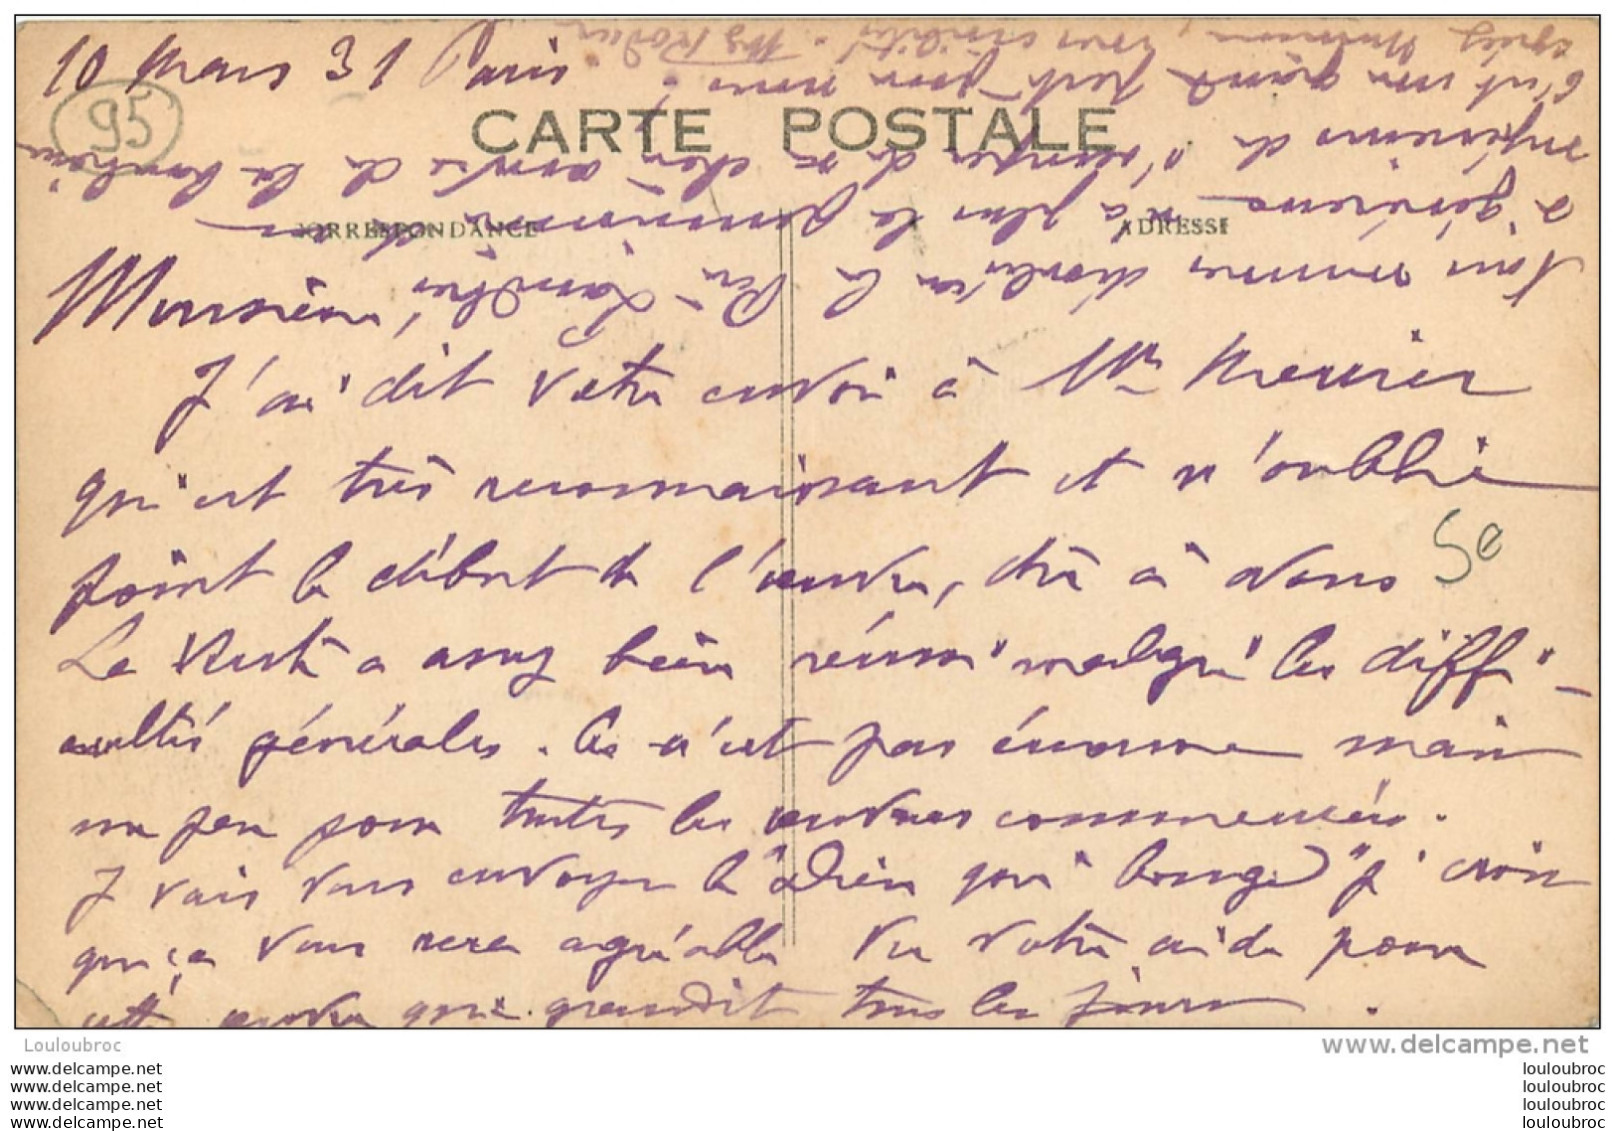 10 Mars 31 Paris
95
CARTE POSTALE
CORRESPONDANCE
ADRESSE
Monsieur,
J'ai dit votre envoi à Mr Meurier
qui est très reconnaissant et n'oublie
point le début de l'œuvre, dû à vous
5e
Le reste a assez bien réussi malgré les diffi-
cultés générales. Ce n'est pas énorme mais
un peu pour toutes les œuvres commencées.
J vais vous envoyer le "Dieu qui bouge" j' crois
que ça vous sera agréable vu votre aide pour
cette œuvre qui grandit tous les jours.
Nous sommes la
Père
généreux n'a plus la
s'occuper de sa chère œuvre de la
C'est une grande perte pour nous.
Louloubroc
www.delcampe.net
www.delcampe.net
www.delcampe.net
www.delcampe.net
www.delcampe.net
louloubroc
louloubroc
louloubroc
louloubroc